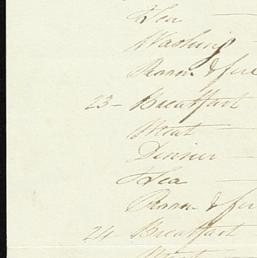 Tea
Washing
Room & fire
23 - Breakfast
Meat
Dinner
Tea
Room & fir
24 - Breakfast
Meat